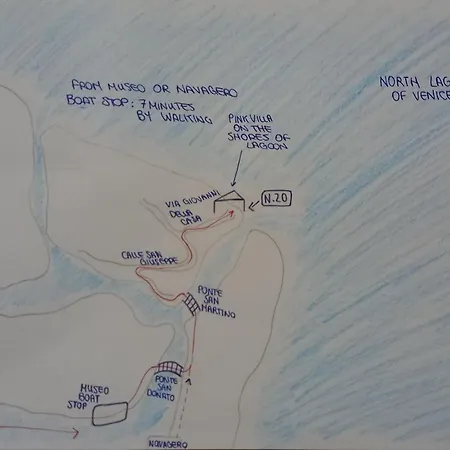 FROM MUSEO OR NAVAGERO
BOAT STOP: 7 MINUTES
BY WALKING
NORTH LAG
OF VENICE
PINK VILLA
ON THE
SHORES OF
LAGOON
N.20
VIA GIOVANNI
DELLA
CASA
CALLE SAN
GIUSEPPE
PONTE
SAN
MARTINO
PONTE
SAN
DONATO
MUSEO
BOAT
STOP
NAVAGERO